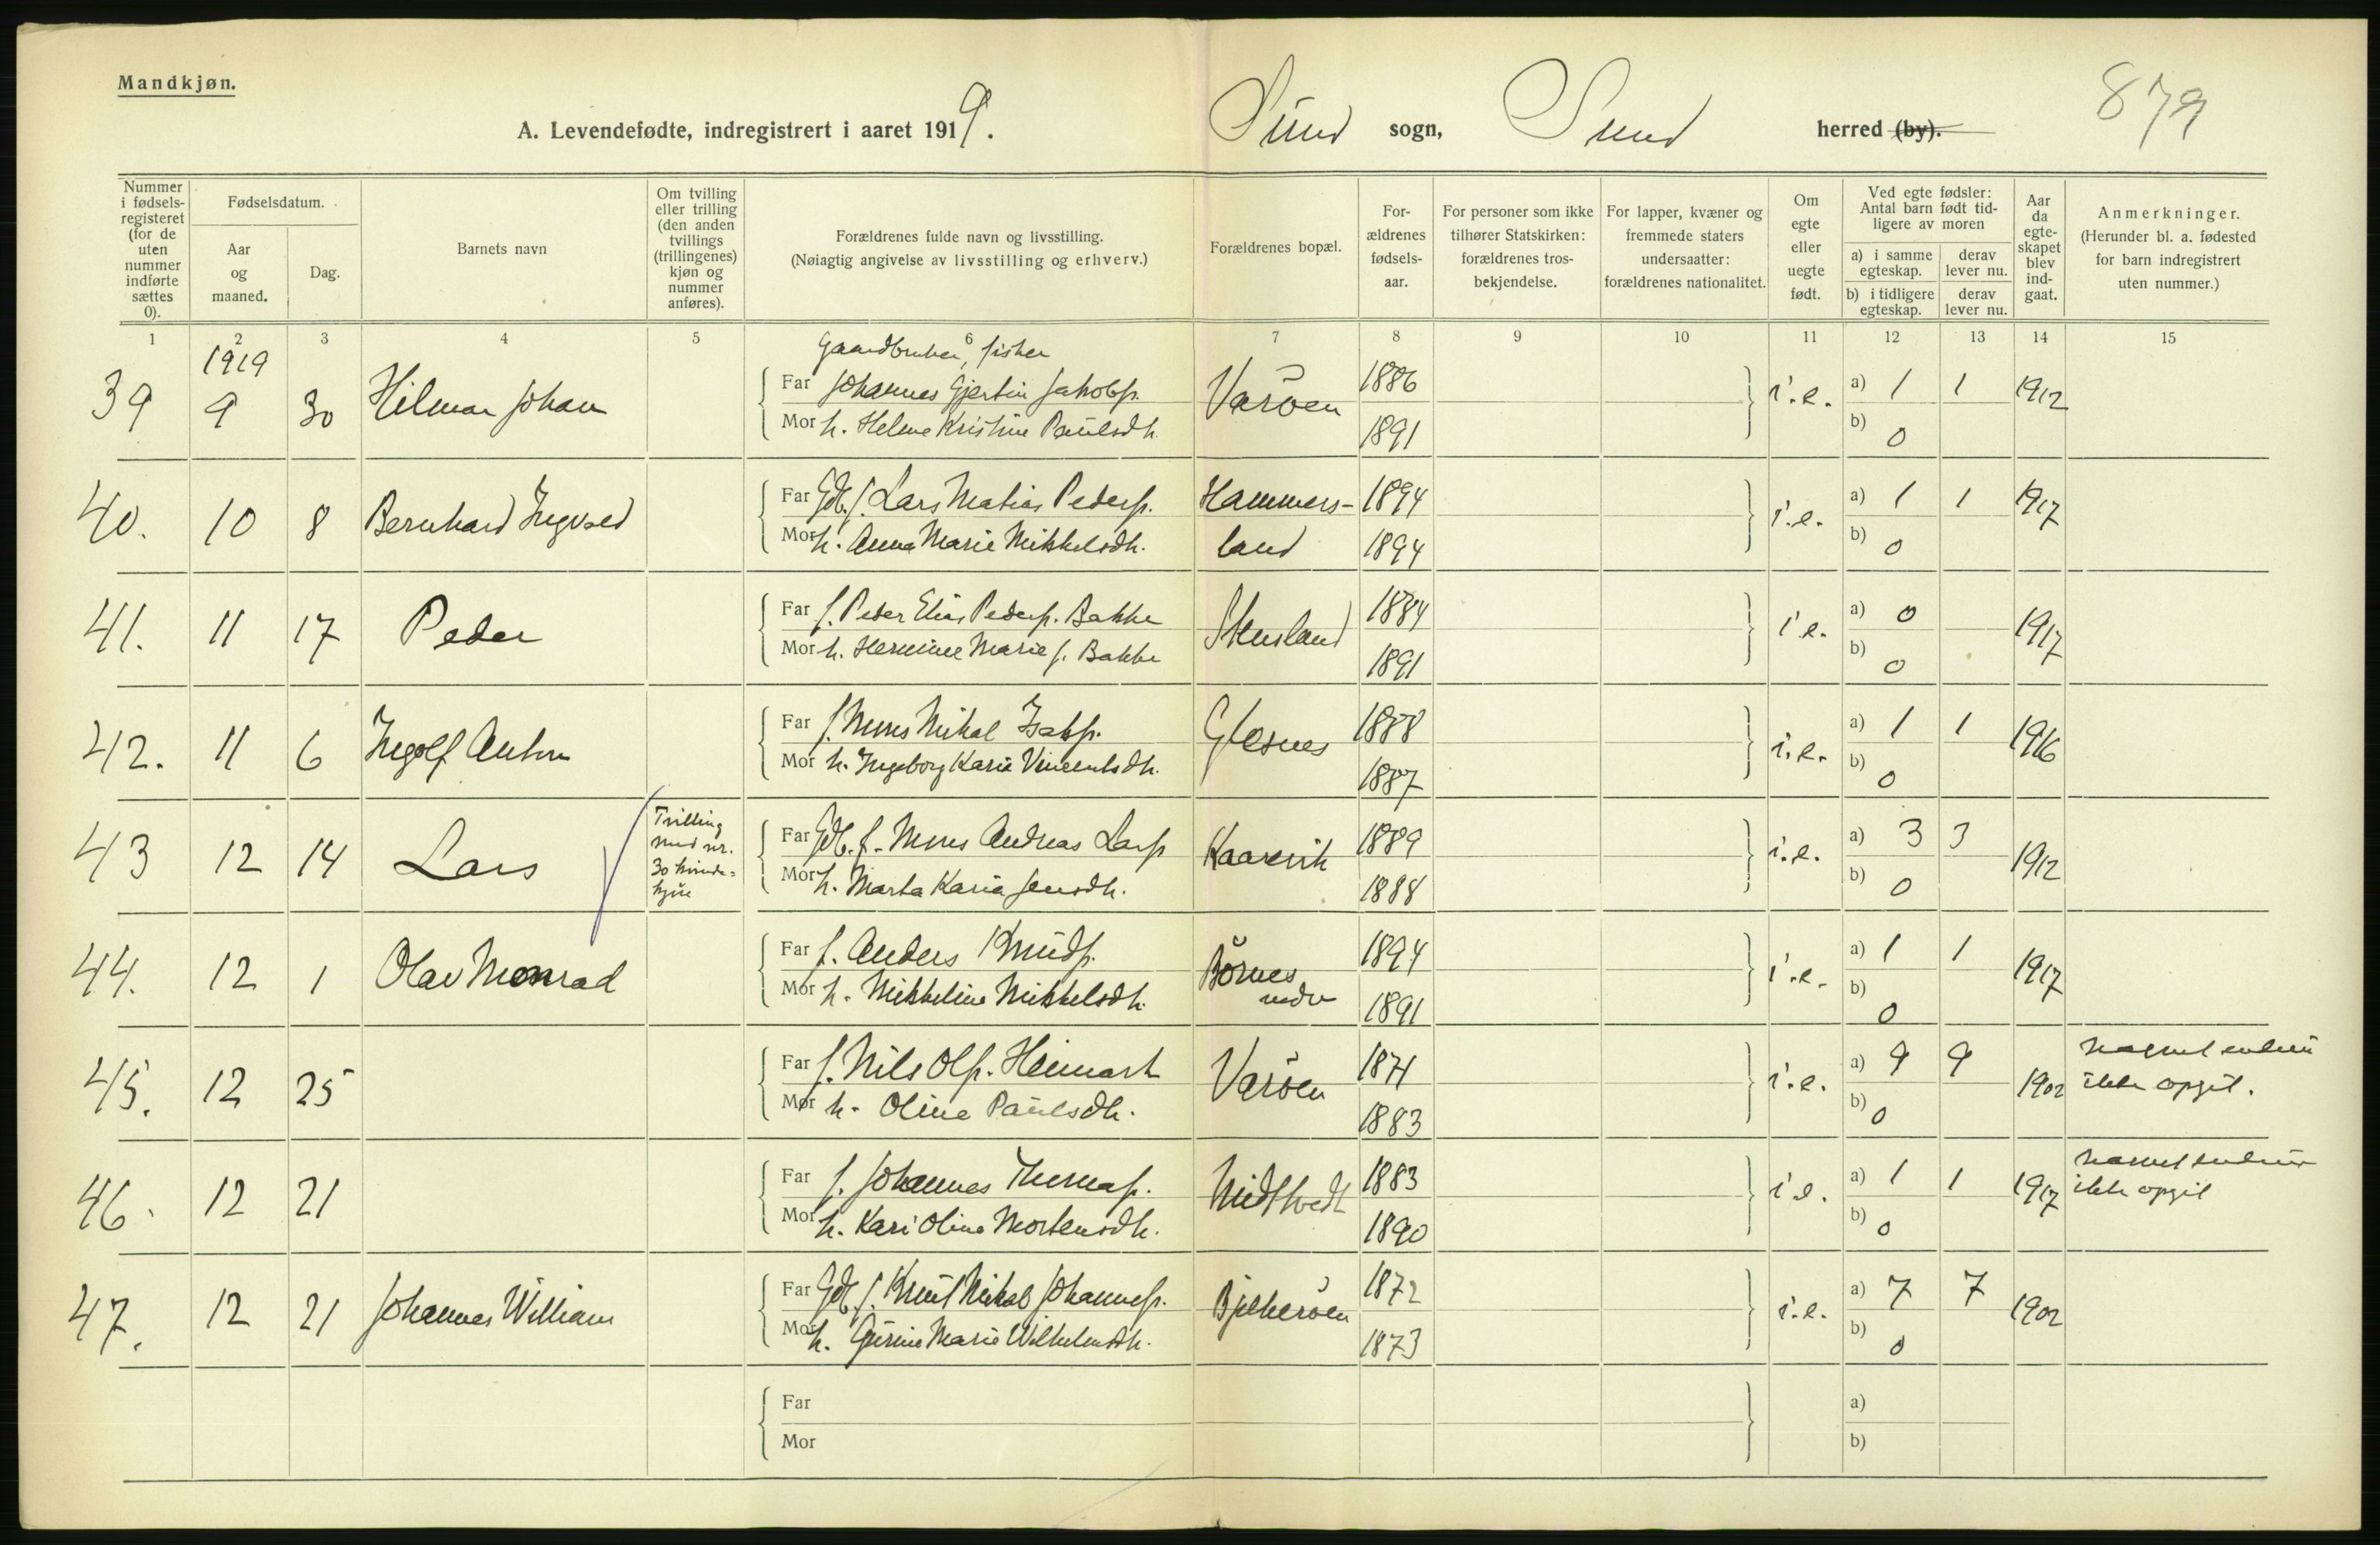 Mandkjøn.
879
A. Levendefødte, indregistrert i aaret 1919. Sund sogn, Sund herred (by).
Nummer i fødsels-registeret (for de uten nummer indførte sættes 0).
Fødselsdatum.
Aar og maaned.
Dag.
Barnets navn
Om tvilling eller trilling (den anden tvillings (trillingenes) kjøn og nummer anføres).
Forældrenes fulde navn og livsstilling.
(Nøiagtig angivelse av livsstilling og erhverv.)
Forældrenes bopæl.
For-ældrenes fødsels-aar.
For personer som ikke tilhører Statskirken: forældrenes tros-bekjendelse.
For lapper, kvæner og fremmede staters undersaatter: forældrenes nationalitet.
Om egte eller uegte født.
Ved egte fødsler: Antal barn født tid-ligere av moren
a) i samme egteskap.
derav lever nu.
b) i tidligere egteskap.
derav lever nu.
Aar da egte-skapet blev ind-gaat.
Anmerkninger.
(Herunder bl. a. fødested for barn indregistrert uten nummer.)
1 2 3 4 5 6 7 8 9 10 11 12 13 14 15
1919
Gaardbruker, fisker
39 9 30 Hilmar Johan Far Johannes Gjertin Jakobs. Varöen 1886 i.e. a) 1 1 1912
Mor h. Helene Kristine Paulsdh. 1891 b) 0
40. 10 8 Bernhard Ingvald Far Gdb. f. Lars Matias Peders. Hammers- 1894 i.e. a) 1 1 1917
Mor h. Anna Marie Mikkelsdh. land 1894 b) 0
41. 11 17 Peder Far f. Peder Elias Peders. Bakke Stensland 1884 i.e. a) 0 1917
Mor h. Hermine Marie f. Bakke 1891 b) 0
42. 11 6 Ingolf Anton Far f. Mons Nikal Isaks. Glesnes 1888 i.e. a) 1 1 1916
Mor h. Ingeborg Karia Vincentsdh. 1887 b) 0
43 12 14 Lars Tvilling med nr. 30 kvinde= kjön Far Gdb. f. Mons Andreas Lars. Kaarevik 1889 i.e. a) 3 3 1912
Mor h. Marta Karia Jensdh. 1888 b) 0
44. 12 1 Olav Monrad Far f. Anders Knuds. Börnes nedre 1894 i.e. a) 1 1 1917
Mor h. Mikkeline Mikkelsdh. 1891 b) 0
45. 12 25 Far f. Nils Ols. Heimark Varöen 1871 i.e. a) 9 9 1902 navnet endnu ikke opgit.
Mor h. Oline Paulsdh. 1883 b) 0
46. 12 21 Far f. Johannes Thomas. Midttvedt 1883 i.e. a) 1 1 1917 navnet endnu ikke opgit
Mor h. Kari Olina Mortensdh. 1890 b) 0
47. 12 21 Johannes William Far Gdb. f. Knut Nikal Johannes. Bjelkeröen 1872 i.e. a) 7 7 1902
Mor h. Gurine Marie Wilhelmsdh. 1873 b) 0
Far a)
Mor b)